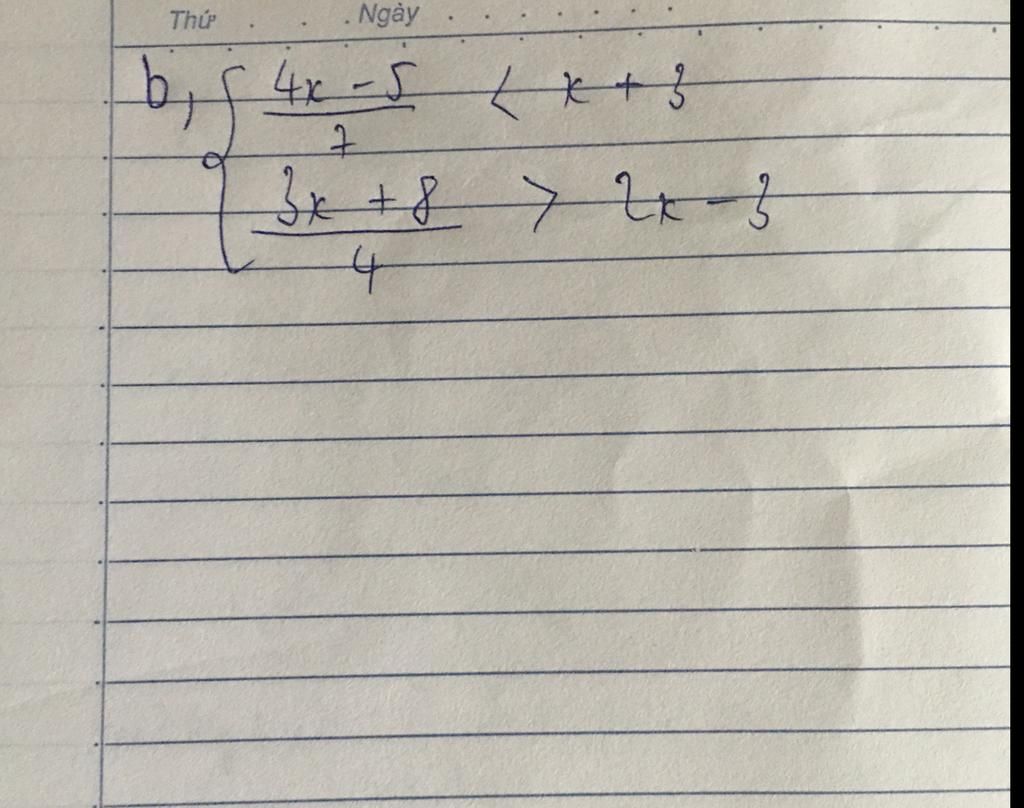 Thứ . . . Ngày . . . . . . .
b, { (4x - 5)/7 < x + 3
(3x + 8)/4 > 2x - 3